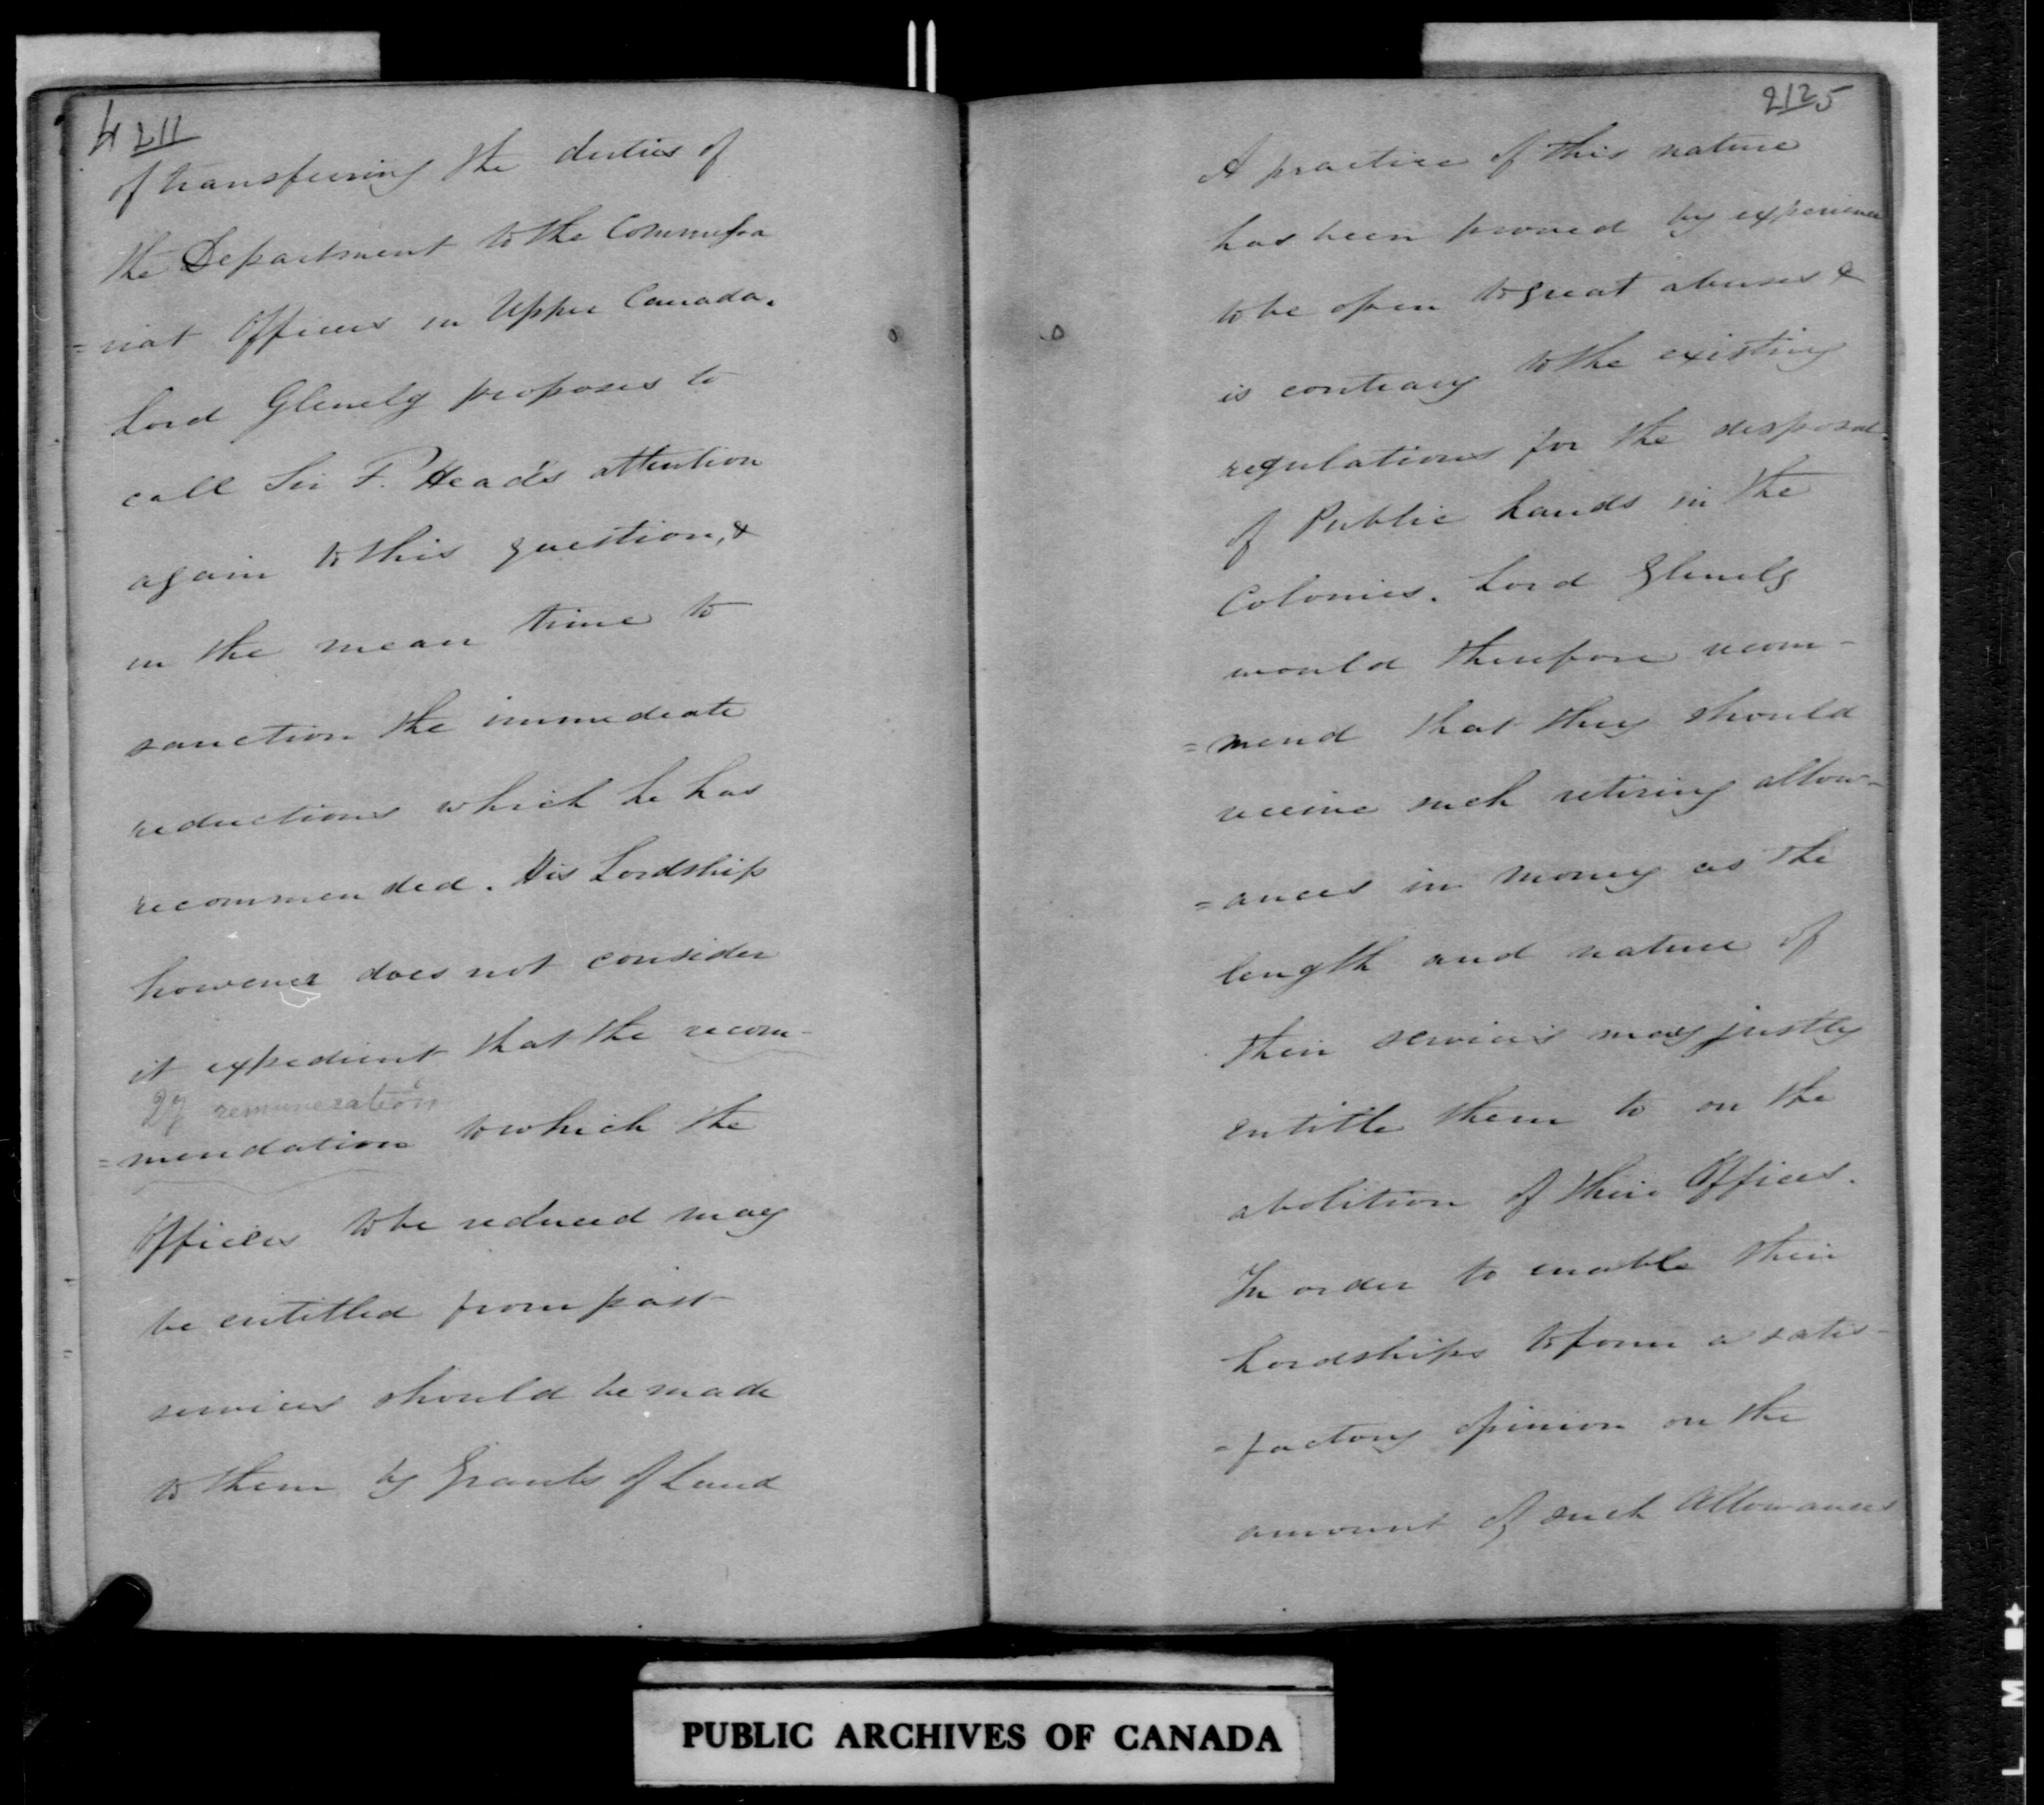 4 211
of transferring the duties of
the Department to the Commissa
=riat Officers in Upper Canada.
Lord Glenelg proposes to
call Sir F. Head's attention
again to this question, &
in the mean time to
sanction the immediate
reductions which he has
recommended. His Lordship
however does not consider
it expedient that the recom-
Qy remuneration
=mendation to which the
Officers to be reduced may
be entitled from past
services should be made
to them by Grants of Land
212 5
A practice of this nature
has been proved by experience
to be open to great abuses &
is contrary to the existing
regulations for the disposal
of Public Lands in the
Colonies. Lord Glenelg
would therefore recom-
=mend that they should
receive such retiring allow-
=ances in money as the
length and nature of
their services may justly
entitle them to on the
abolition of their Offices.
In order to enable their
Lordships to form a satis-
=factory opinion on the
amount of such Allowances
PUBLIC ARCHIVES OF CANADA
L M